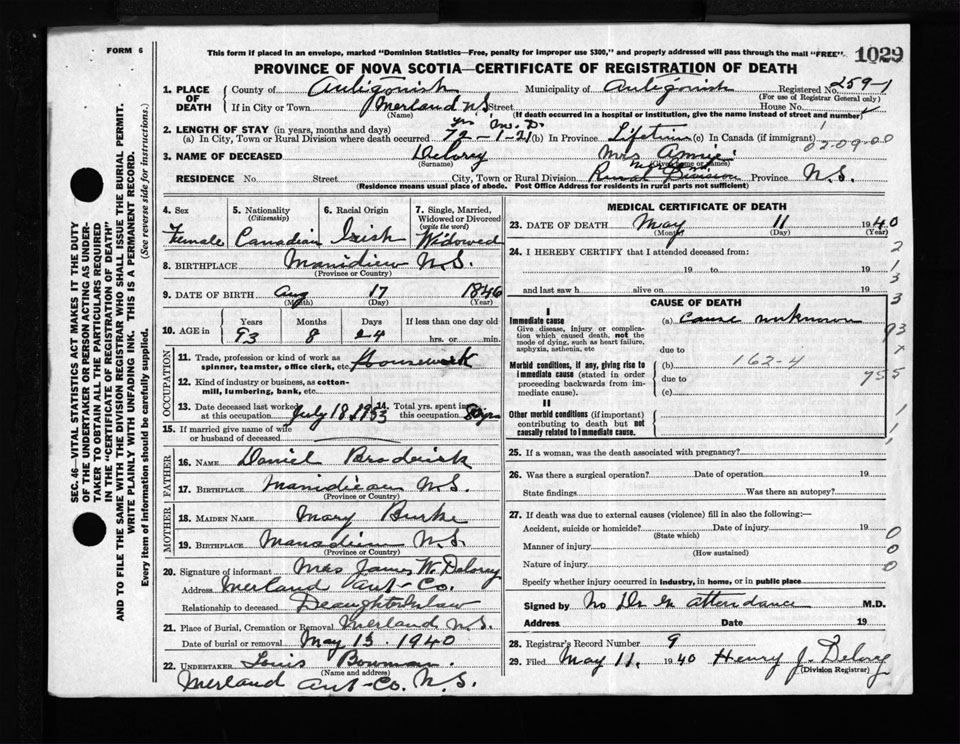 FORM 6
This form if placed in an envelope, marked "Dominion Statistics—Free, penalty for improper use $300," and properly addressed will pass through the mail "FREE".
1029
PROVINCE OF NOVA SCOTIA—CERTIFICATE OF REGISTRATION OF DEATH
SEC. 46—VITAL STATISTICS ACT MAKES IT THE DUTY
OF THE UNDERTAKER OR PERSON ACTING AS UNDER-
TAKER TO OBTAIN ALL THE PARTICULARS REQUIRED
IN THE "CERTIFICATE OF REGISTRATION OF DEATH"
AND TO FILE THE SAME WITH THE DIVISION REGISTRAR WHO SHALL ISSUE THE BURIAL PERMIT.
WRITE PLAINLY WITH UNFADING INK. THIS IS A PERMANENT RECORD.
Every item of information should be carefully supplied. (See reverse side for instructions.)
1. PLACE OF DEATH
County of Antigonish Municipality of Antigonish Registered No. 259-1
(For use of Registrar General only)
If in City or Town Merland N.S. Street House No.
(Name) (If death occurred in a hospital or institution, give the name instead of street and number)
2. LENGTH OF STAY (in years, months and days) yrs M. D.
(a) In City, Town or Rural Division where death occurred 72-1-21 (b) In Province Lifetime (c) In Canada (if immigrant)
02-09-00
3. NAME OF DECEASED Delorey Mrs Annie
(Surname) (Given name or names)
RESIDENCE No. Street City, Town or Rural Division Rural Division Province N.S.
(Residence means usual place of abode. Post Office Address for residents in rural parts not sufficient)
4. Sex Female
5. Nationality (Citizenship) Canadian
6. Racial Origin Irish
7. Single, Married, Widowed or Divorced (write the word) Widowed
8. BIRTHPLACE N.S.
(Province or Country)
9. DATE OF BIRTH Aug 17 1846
(Month) (Day) (Year)
10. AGE in Years Months Days If less than one day old
93 8 24 hrs. or min.
OCCUPATION
11. Trade, profession or kind of work as spinner, teamster, office clerk, etc. Housework
12. Kind of industry or business, as cotton-mill, lumbering, bank, etc.
13. Date deceased last worked at this occupation July 18, 1933
14. Total yrs. spent in this occupation yrs
15. If married give name of wife or husband of deceased
FATHER
16. NAME Daniel Broderick
17. BIRTHPLACE N.S.
(Province or Country)
MOTHER
18. MAIDEN NAME Mary Burke
19. BIRTHPLACE N.S.
(Province or Country)
20. Signature of informant Mrs James W. Delorey
Address Merland Ant-Co.
Relationship to deceased Deaughterinlaw
21. Place of Burial, Cremation or Removal Merland N.S.
Date of burial or removal May 13 1940
22. UNDERTAKER Louis Bowman.
(Name and address)
Merland Ant-Co. N.S.
MEDICAL CERTIFICATE OF DEATH
23. DATE OF DEATH May 11 1940
(Month) (Day) (Year)
24. I HEREBY CERTIFY that I attended deceased from:
19 to 19
and last saw h alive on 19
CAUSE OF DEATH
I
Immediate cause
Give disease, injury or complica-
tion which caused death, not the
mode of dying, such as heart failure,
asphyxia, asthenia, etc
(a) cause unknown
due to
Morbid conditions, if any, giving rise to
immediate cause (stated in order
proceeding backwards from im-
mediate cause).
(b) 162-4
due to
(c)
II
Other morbid conditions (if important)
contributing to death but not
causally related to immediate cause.
2
1
3
3
93
x
755
1
1
1
25. If a woman, was the death associated with pregnancy?
26. Was there a surgical operation? Date of operation 19
State findings Was there an autopsy?
27. If death was due to external causes (violence) fill in also the following:—
Accident, suicide or homicide? Date of injury 19
(State which)
Manner of injury
(How sustained)
Nature of injury
0
0
0
Specify whether injury occurred in industry, in home, or in public place
Signed by No Dr in attendance M.D.
Address Date 19
28. Registrar's Record Number 9
29. Filed May 11, 1940 Henry J. Delorey
(Division Registrar)